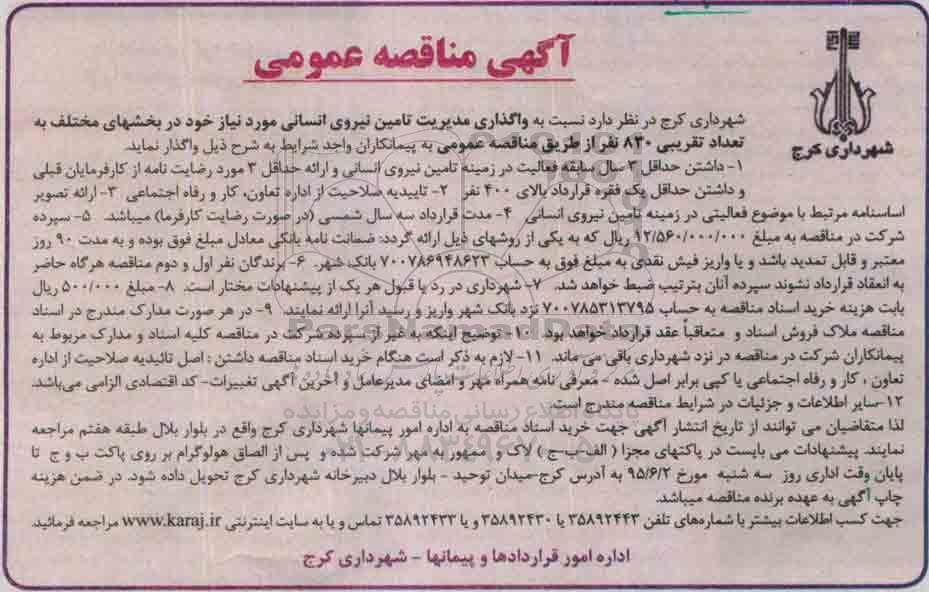 آگهی مناقصه عمومی
شهرداری کرج
شهرداری کرج در نظر دارد نسبت به واگذاری مدیریت تامین نیروی انسانی مورد نیاز خود در بخشهای مختلف به
تعداد تقریبی ۸۳۰ نفر از طریق مناقصه عمومی به پیمانکاران واجد شرایط به شرح ذیل واگذار نماید.
۱- داشتن حداقل ۳ سال سابقه فعالیت در زمینه تامین نیروی انسانی و ارائه حداقل ۳ مورد رضایت نامه از کارفرمایان قبلی
و داشتن حداقل یک فقره قرارداد بالای ۴۰۰ نفر ۲- تاییدیه صلاحیت از اداره تعاون، کار و رفاه اجتماعی ۳- ارائه تصویر
اساسنامه مرتبط با موضوع فعالیتی در زمینه تامین نیروی انسانی ۴- مدت قرارداد سه سال شمسی (در صورت رضایت کارفرما) میباشد. ۵- سپرده
شرکت در مناقصه به مبلغ ۱۲/۵۶۰/۰۰۰/۰۰۰ ریال که به یکی از روشهای ذیل ارائه گردد: ضمانت نامه بانکی معادل مبلغ فوق بوده و به مدت ۹۰ روز
معتبر و قابل تمدید باشد و یا واریز فیش نقدی به مبلغ فوق به حساب ۷۰۰۷۸۶۹۴۸۶۲۳ بانک شهر. ۶- برندگان نفر اول و دوم مناقصه هرگاه حاضر
به انعقاد قرارداد نشوند سپرده آنان بترتیب ضبط خواهد شد. ۷- شهرداری در رد یا قبول هر یک از پیشنهادات مختار است. ۸- مبلغ ۵۰۰/۰۰۰ ریال
بابت هزینه خرید اسناد مناقصه به حساب ۷۰۰۷۸۵۳۱۳۷۹۵ نزد بانک شهر واریز و رسید آنرا ارائه نمایند. ۹- در هر صورت مدارک مندرج در اسناد
مناقصه ملاک فروش اسناد و متعاقباً عقد قرارداد خواهد بود. ۱۰- توضیح اینکه به غیر از سپرده شرکت در مناقصه کلیه اسناد و مدارک مربوط به
پیمانکاران شرکت در مناقصه در نزد شهرداری باقی می ماند. ۱۱- لازم به ذکر است هنگام خرید اسناد مناقصه داشتن : اصل تائیدیه صلاحیت از اداره
تعاون ، کار و رفاه اجتماعی یا کپی برابر اصل شده - معرفی نامه همراه مهر و امضای مدیرعامل و آخرین آگهی تغییرات- کد اقتصادی الزامی می‌باشد.
۱۲-سایر اطلاعات و جزئیات در شرایط مناقصه مندرج است.
لذا متقاضیان می توانند از تاریخ انتشار آگهی جهت خرید اسناد مناقصه به اداره امور پیمانها شهرداری کرج واقع در بلوار بلال طبقه هفتم مراجعه
نمایند. پیشنهادات می بایست در پاکتهای مجزا ( الف-ب-ج ) لاک و ممهور به مهر شرکت شده و پس از الصاق هولوگرام بر روی پاکت ب و ج تا
پایان وقت اداری روز سه شنبه مورخ ۹۵/۶/۲ به آدرس کرج-میدان توحید - بلوار بلال دبیرخانه شهرداری کرج تحویل داده شود. در ضمن هزینه
چاپ آگهی به عهده برنده مناقصه میباشد.
جهت کسب اطلاعات بیشتر با شماره‌های تلفن ۳۵۸۹۲۴۴۳ یا ۳۵۸۹۲۴۳۰ و یا ۳۵۸۹۲۴۳۳ تماس و یا به سایت اینترنتی www.karaj.ir مراجعه فرمائید.
اداره امور قراردادها و پیمانها - شهرداری کرج